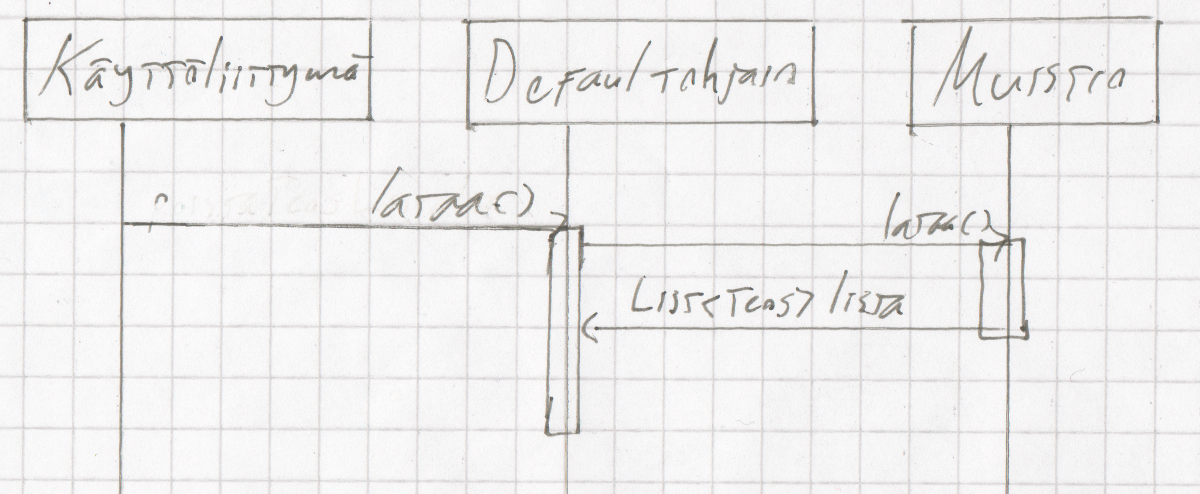 Käyttöliittymä
Defaultohjain
Muistio
lataa()
lataa()
List<Teos> lista